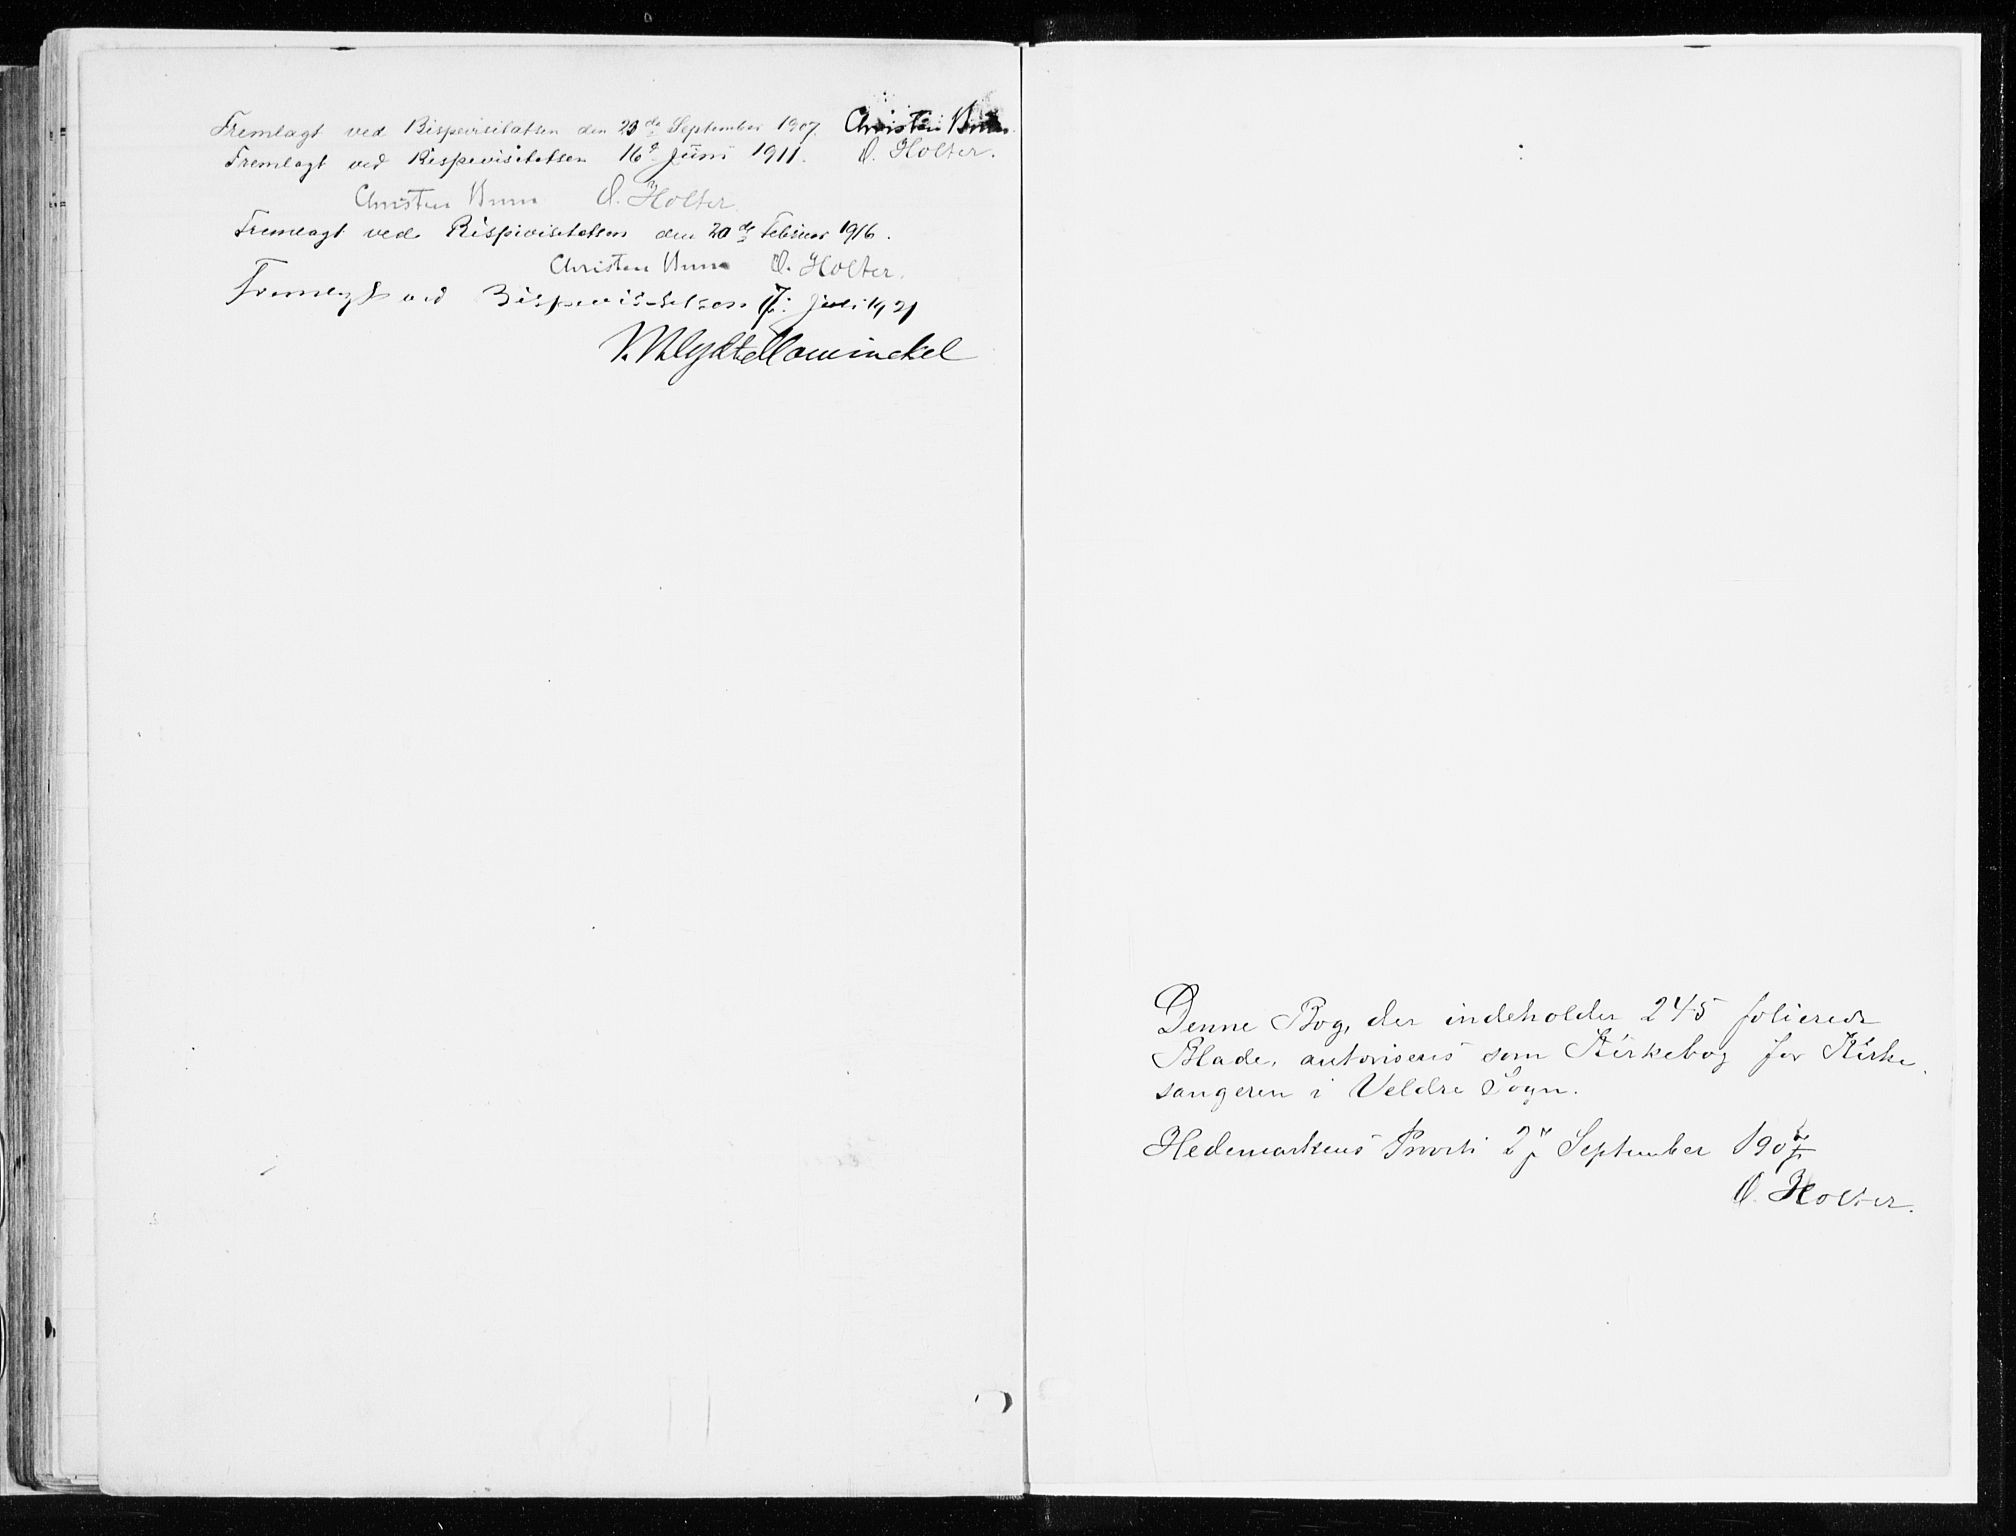 Fremlagt ved Bispevisitatsen den 20de September 1907. Christen Brun
Fremlagt ved Bispevisitatsen 16de Juni 1911. O. Holter.
Christen Brun O. Holter.
Fremlagt ved Bispevisitatsen den 20de Februar 1916.
Christen Brun O. Holter.
Fremlagt ved Bispevisitatsen juli 1921
Mowinckel
Denne Bog, der indeholder 245 folierede
Blade, autoriseres som Kirkebog for Kirke
sangeren i Veldre Sogn.
Hedemarkens Provsti September
O. Holter.